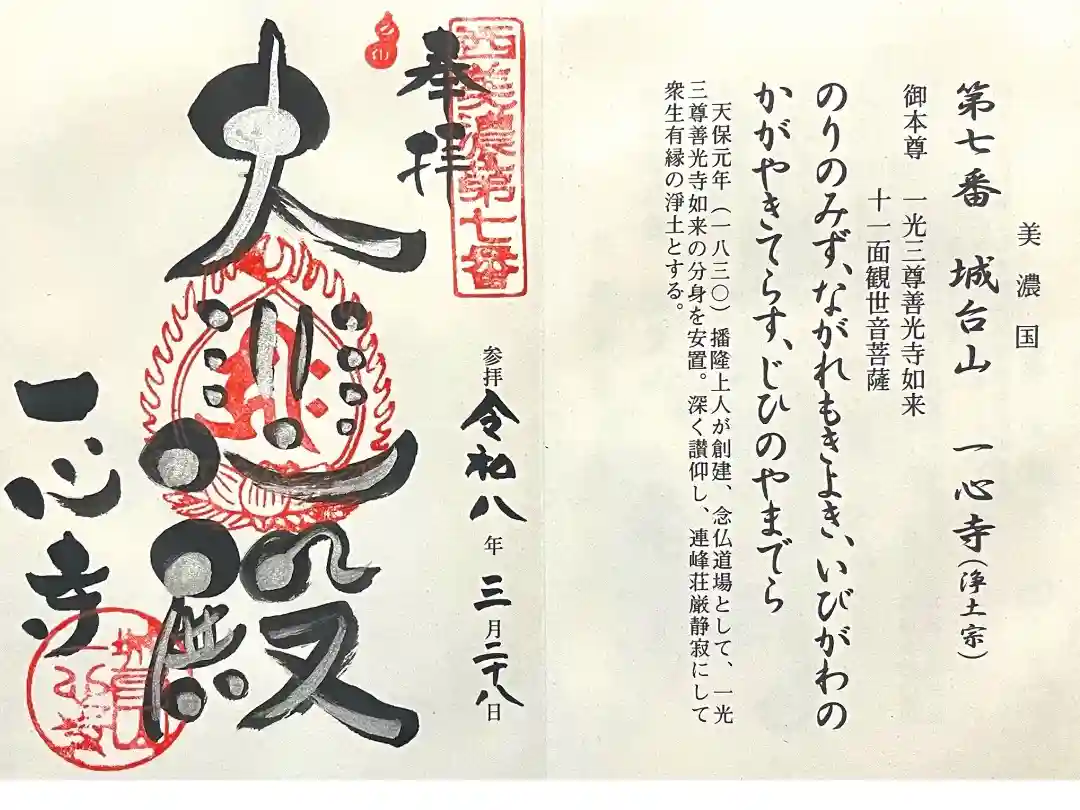 美濃国
第七番 城台山 一心寺(浄土宗)
御本尊 一光三尊善光寺如来
十一面観世音菩薩
のりのみず、ながれもきよき、いびがわの
かがやきてらす、じひのやまでら
天保元年（一八三〇）播隆上人が創建、念仏道場として、一光
三尊善光寺如来の分身を安置。深く讃仰し、連峰荘厳静寂にして
衆生有縁の浄土とする。
西美濃第七番
奉拝
参拝 令和八年 三月二十八日
大悲殿
一心寺